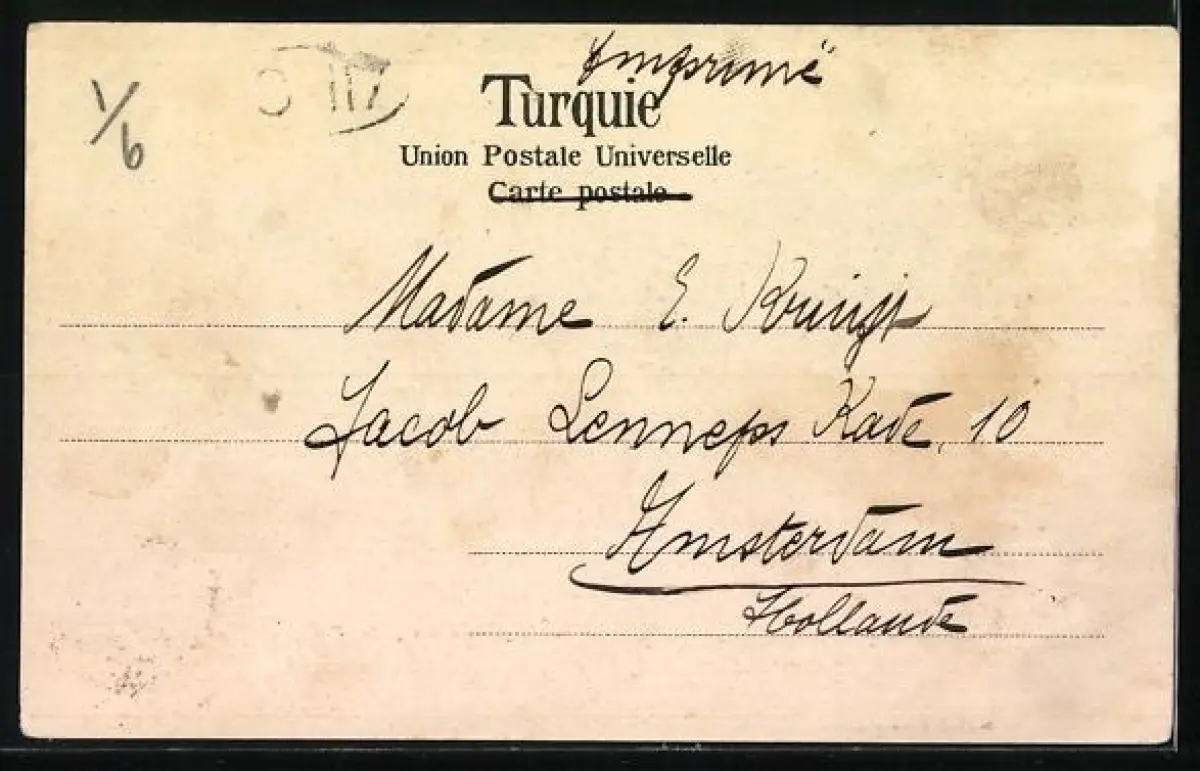 1/6
Imprimé
Turquie
Union Postale Universelle
Carte postale
Madame E.
Jacob Lenneps Kade, 10
Amsterdam
Hollande